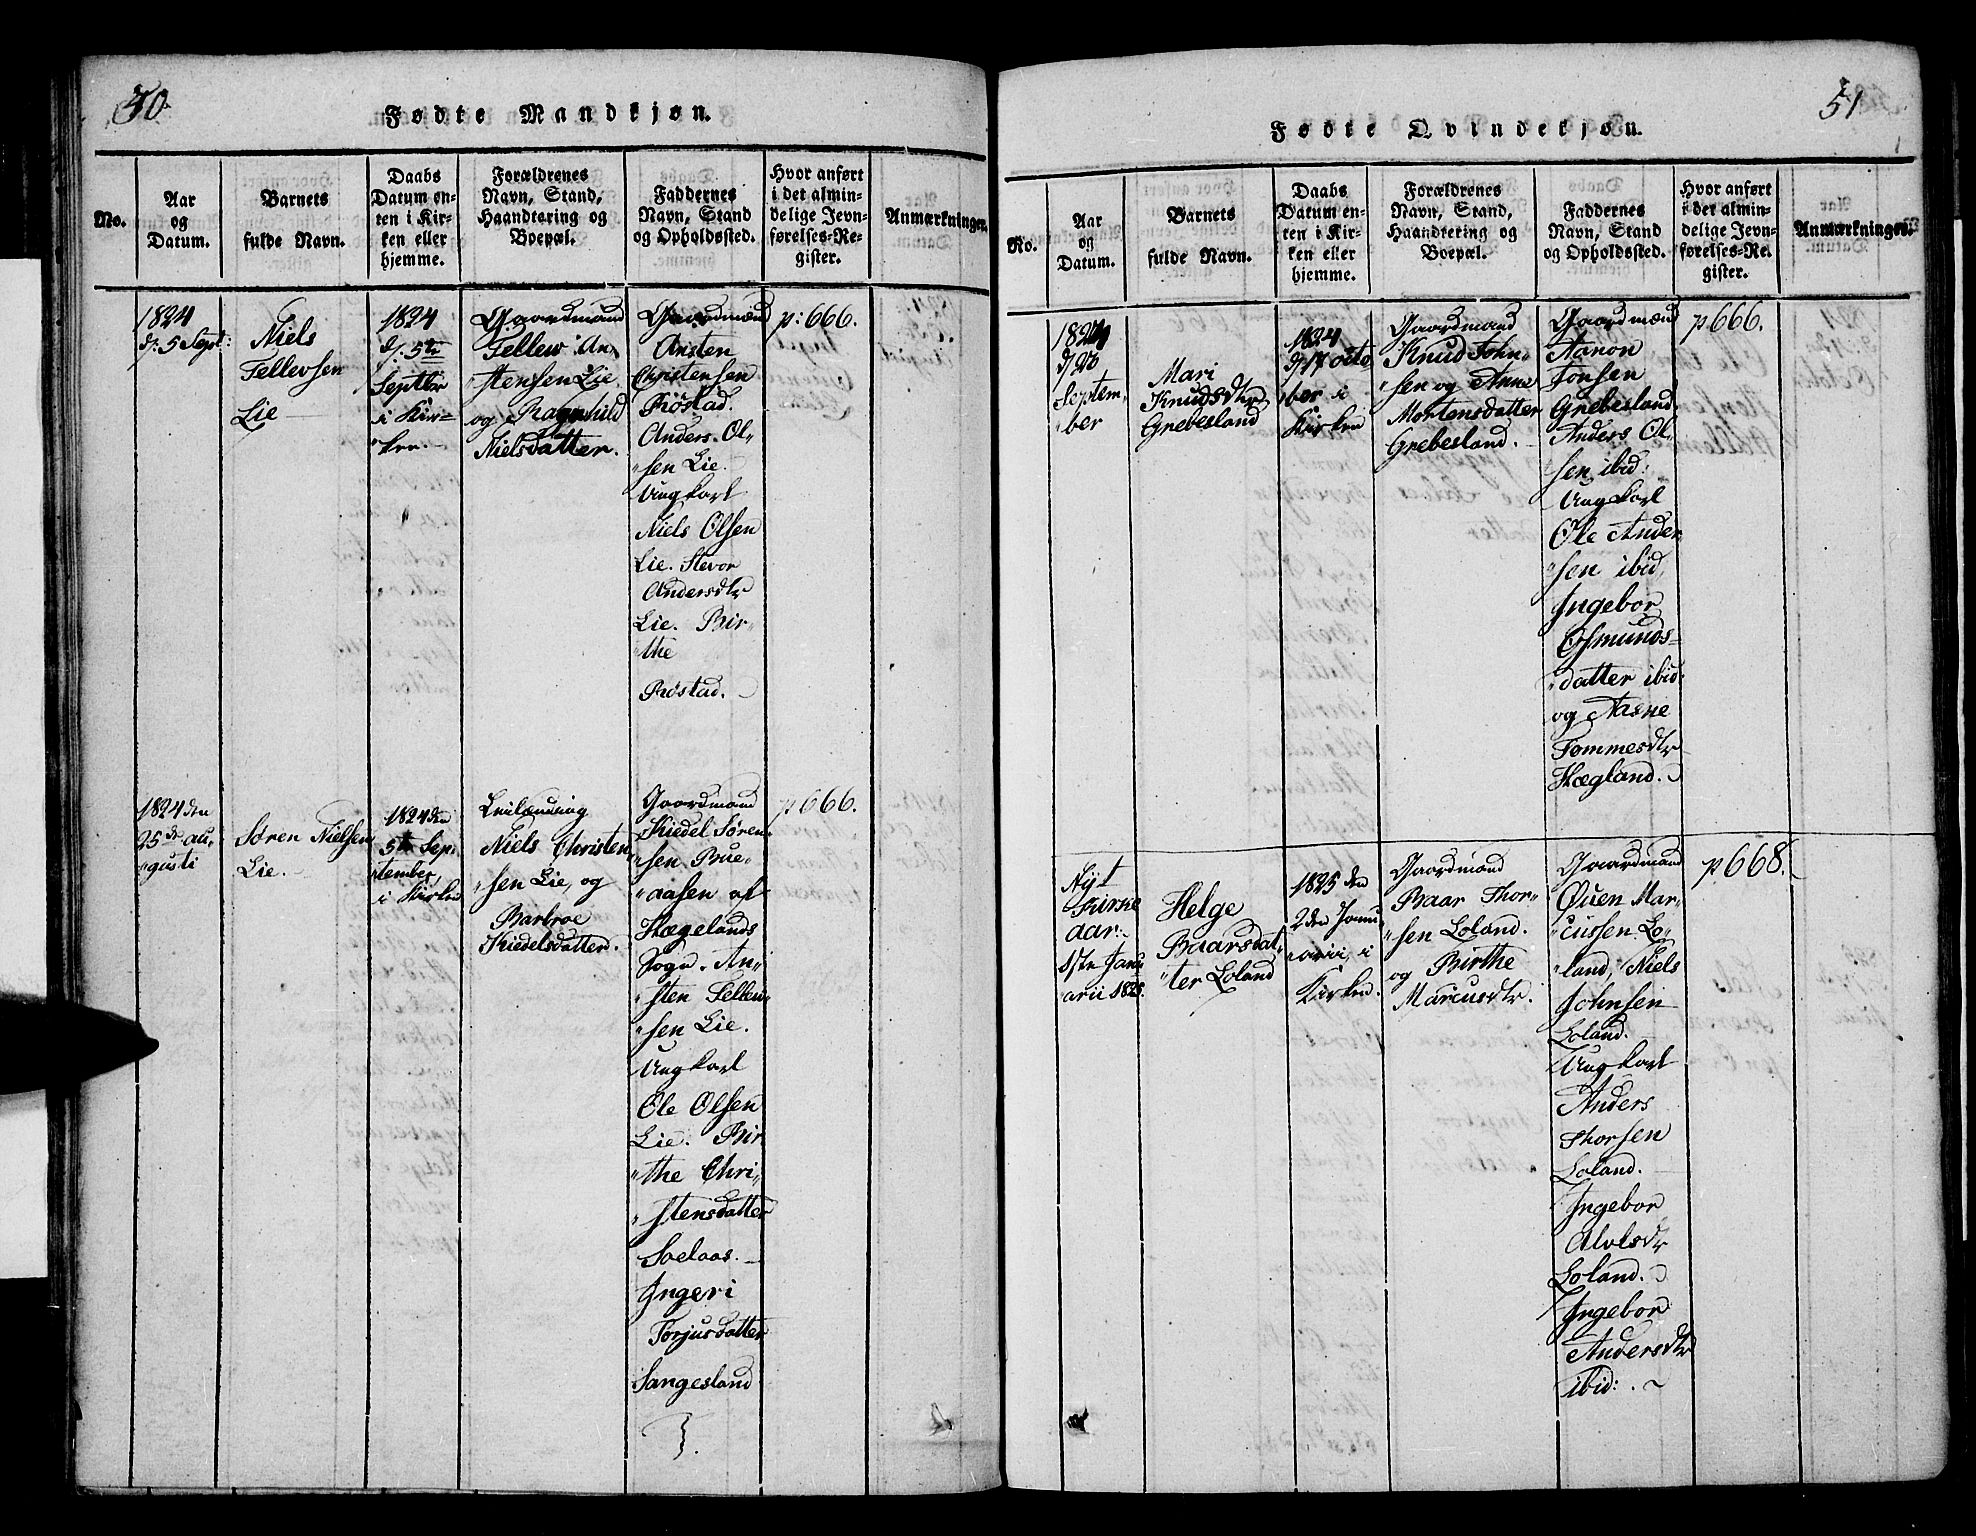 50
Fødte Mandkjøn.
No.
Aar
og
Datum.
Barnets
fulde Navn.
Daabs
Datum en-
ten i Kir-
ken eller
hjemme.
Forældrenes
Navn, Stand,
Haandtering og
Boepæl.
Faddernes
Navn, Stand
og Opholdssted.
Hvor anført
i det almin-
delige Jevn-
førelses-Re-
gister.
Anmærkninger.
1824
d. 5 Sept:
Niels
Tellevsen
Lie
1824
d. 5te
Septbr
i Kir-
"ken.
Gaardmand
Tellew An-
"stensen Lie
og Ragnhild
Nielsdatter.
Gaardmænd
Ansten
Christensen
Røstad.
Anders Ol-
"sen Lie.
Ungkarl
Niels Olsen
Lie. Stevor
Andersdtr
Lie. Bir-
"the
Røstad.
p: 666.
1824 den
25de au-
"gusti
Søren Nielsen
Lie.
1824 den
5te Sep-
"tember,
i Kirken
Leilænding
Niels Christen
"sen Lie, og
Barbroe
Kiedelsdatter.
Gaardmand
Kiedel Søren-
"sen Brue-
"aasen af
Hægelands
Sogn. An-
"sten Tellew-
"sen Lie.
Ungkarl
Ole Olsen
Lie. Bir-
"the Chri-
"stensdatter
Soelaas.
Ingeri
Torjusdatter
Sangesland
p 666.
51
Fødte Qvindekjøn.
No.
Aar
og
Datum.
Barnets
fulde Navn.
Daabs
Datum en-
ten i Kir-
ken eller
hjemme.
Forældrenes
Navn, Stand,
Haandtering og
Boepæl.
Faddernes
Navn, Stand
og Opholdssted.
Hvor anført
i det almin-
delige Jevn-
førelses-Re-
gister.
Anmærkninger.
1824
d 28
Septem-
"ber
Mari
Knudsdtr
Grebesland
1824
d 17 octo
"ber i
Kirken
Gaardmand
Knud John-
"sen og Anne
Mortensdatter
Grebesland.
Gaardmænd
Aanon
Jonsen
Grebesland
Anders Ol-
"sen ibid:
Ungkarl
Ole Ander
"sen ibid,
Ingebor
Osmunds-
"datter ibid:
og Aasne
Tommesdtr
Hægland.
p 666.
Nyt
Kirke
aar:
1ste Janu
arii 1825.
Helge
Baarsdat-
"ter Loland
1825 den
2den Janu-
"arii, i
Kirken.
Gaardmand
Baar Thor-
"sen Loland.
og Birthe
Marcusdtr.
Gaardmand
Ouen Mar-
"cussen Lo-
"land, Niels
Johnsen
Loland.
Ungkarl
Anders
Thorsen
Loland.
Ingebor
Alvlsdtr
Loland.
Ingebor
Andersdtr
ibid:
p 668.